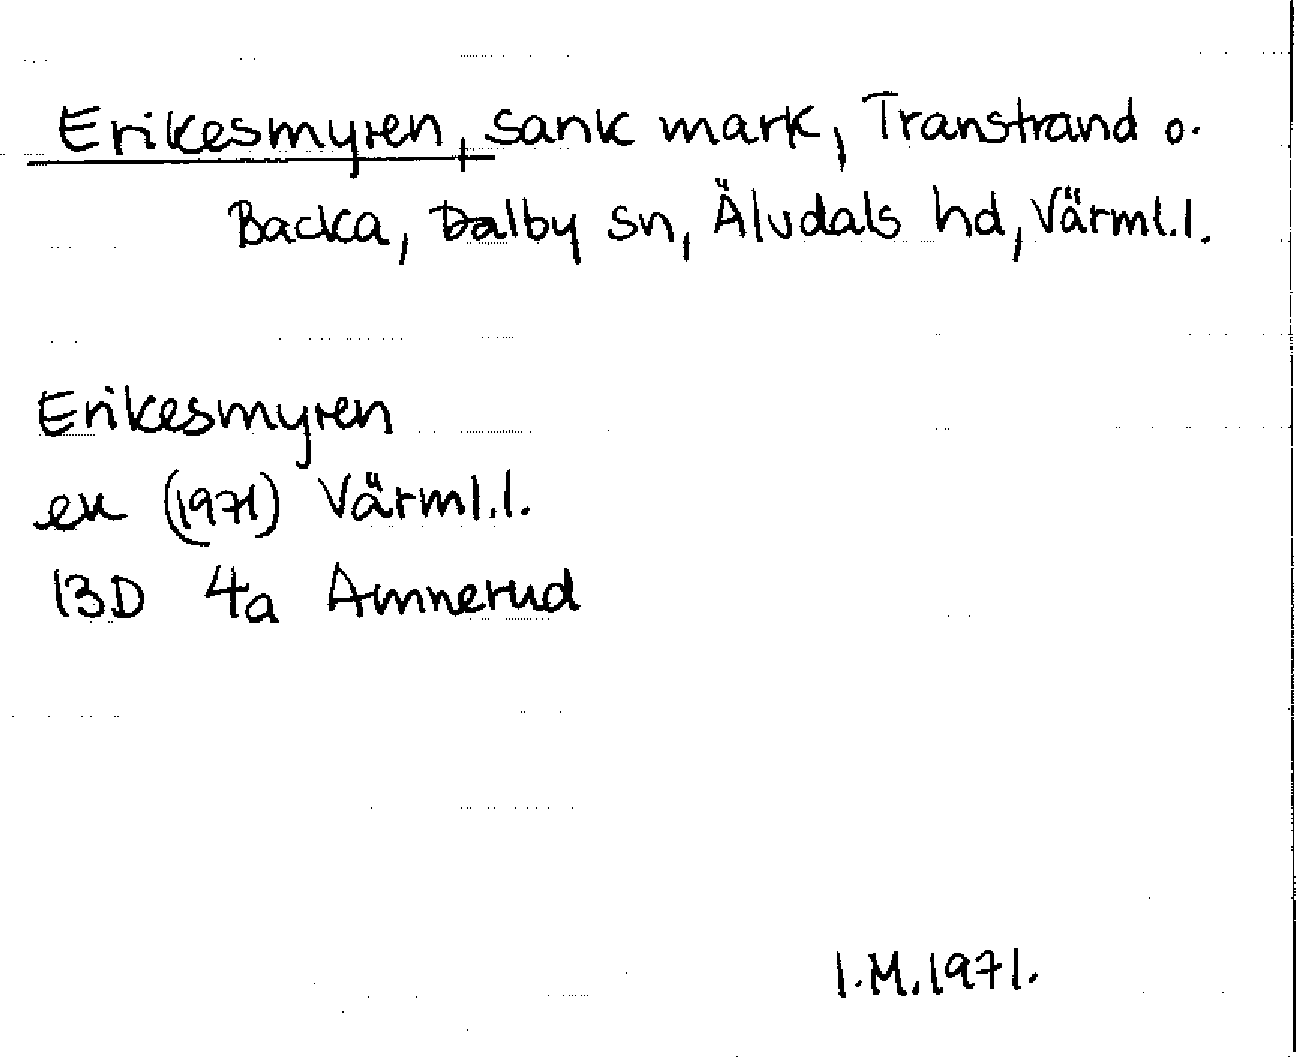 Erikesmyren, sank mark, Transtrand o.
Backa, Dalby sn, Älvdals hd, Värml.l.
Erikesmyren
ek (1971) Värml.l.
13D 4a Amnerud
I.M.1971.